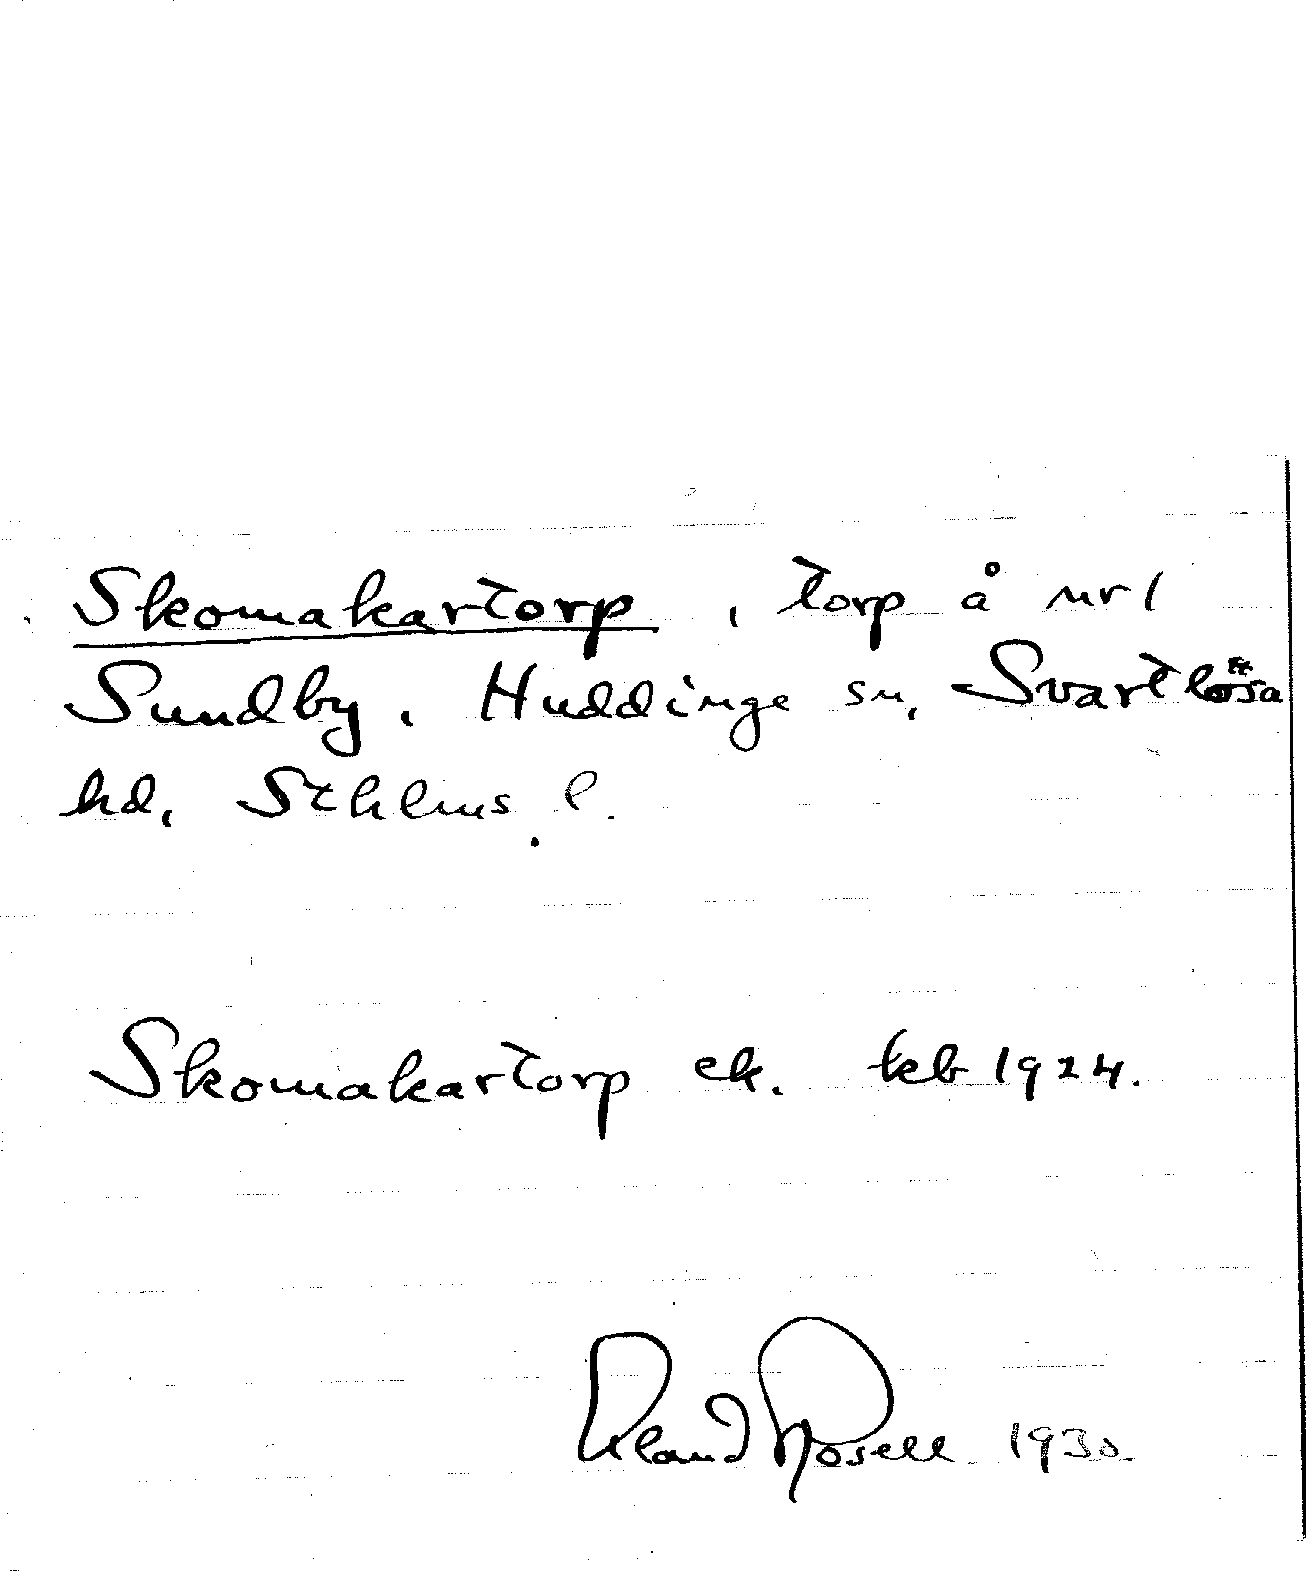 Skomakartorp, torp å nr 1
Sundby, Huddinge sn, Svartlösa
hd, Sthlms l.
Skomakartorp ek. kb 1924.
Erland Rosell 1930.